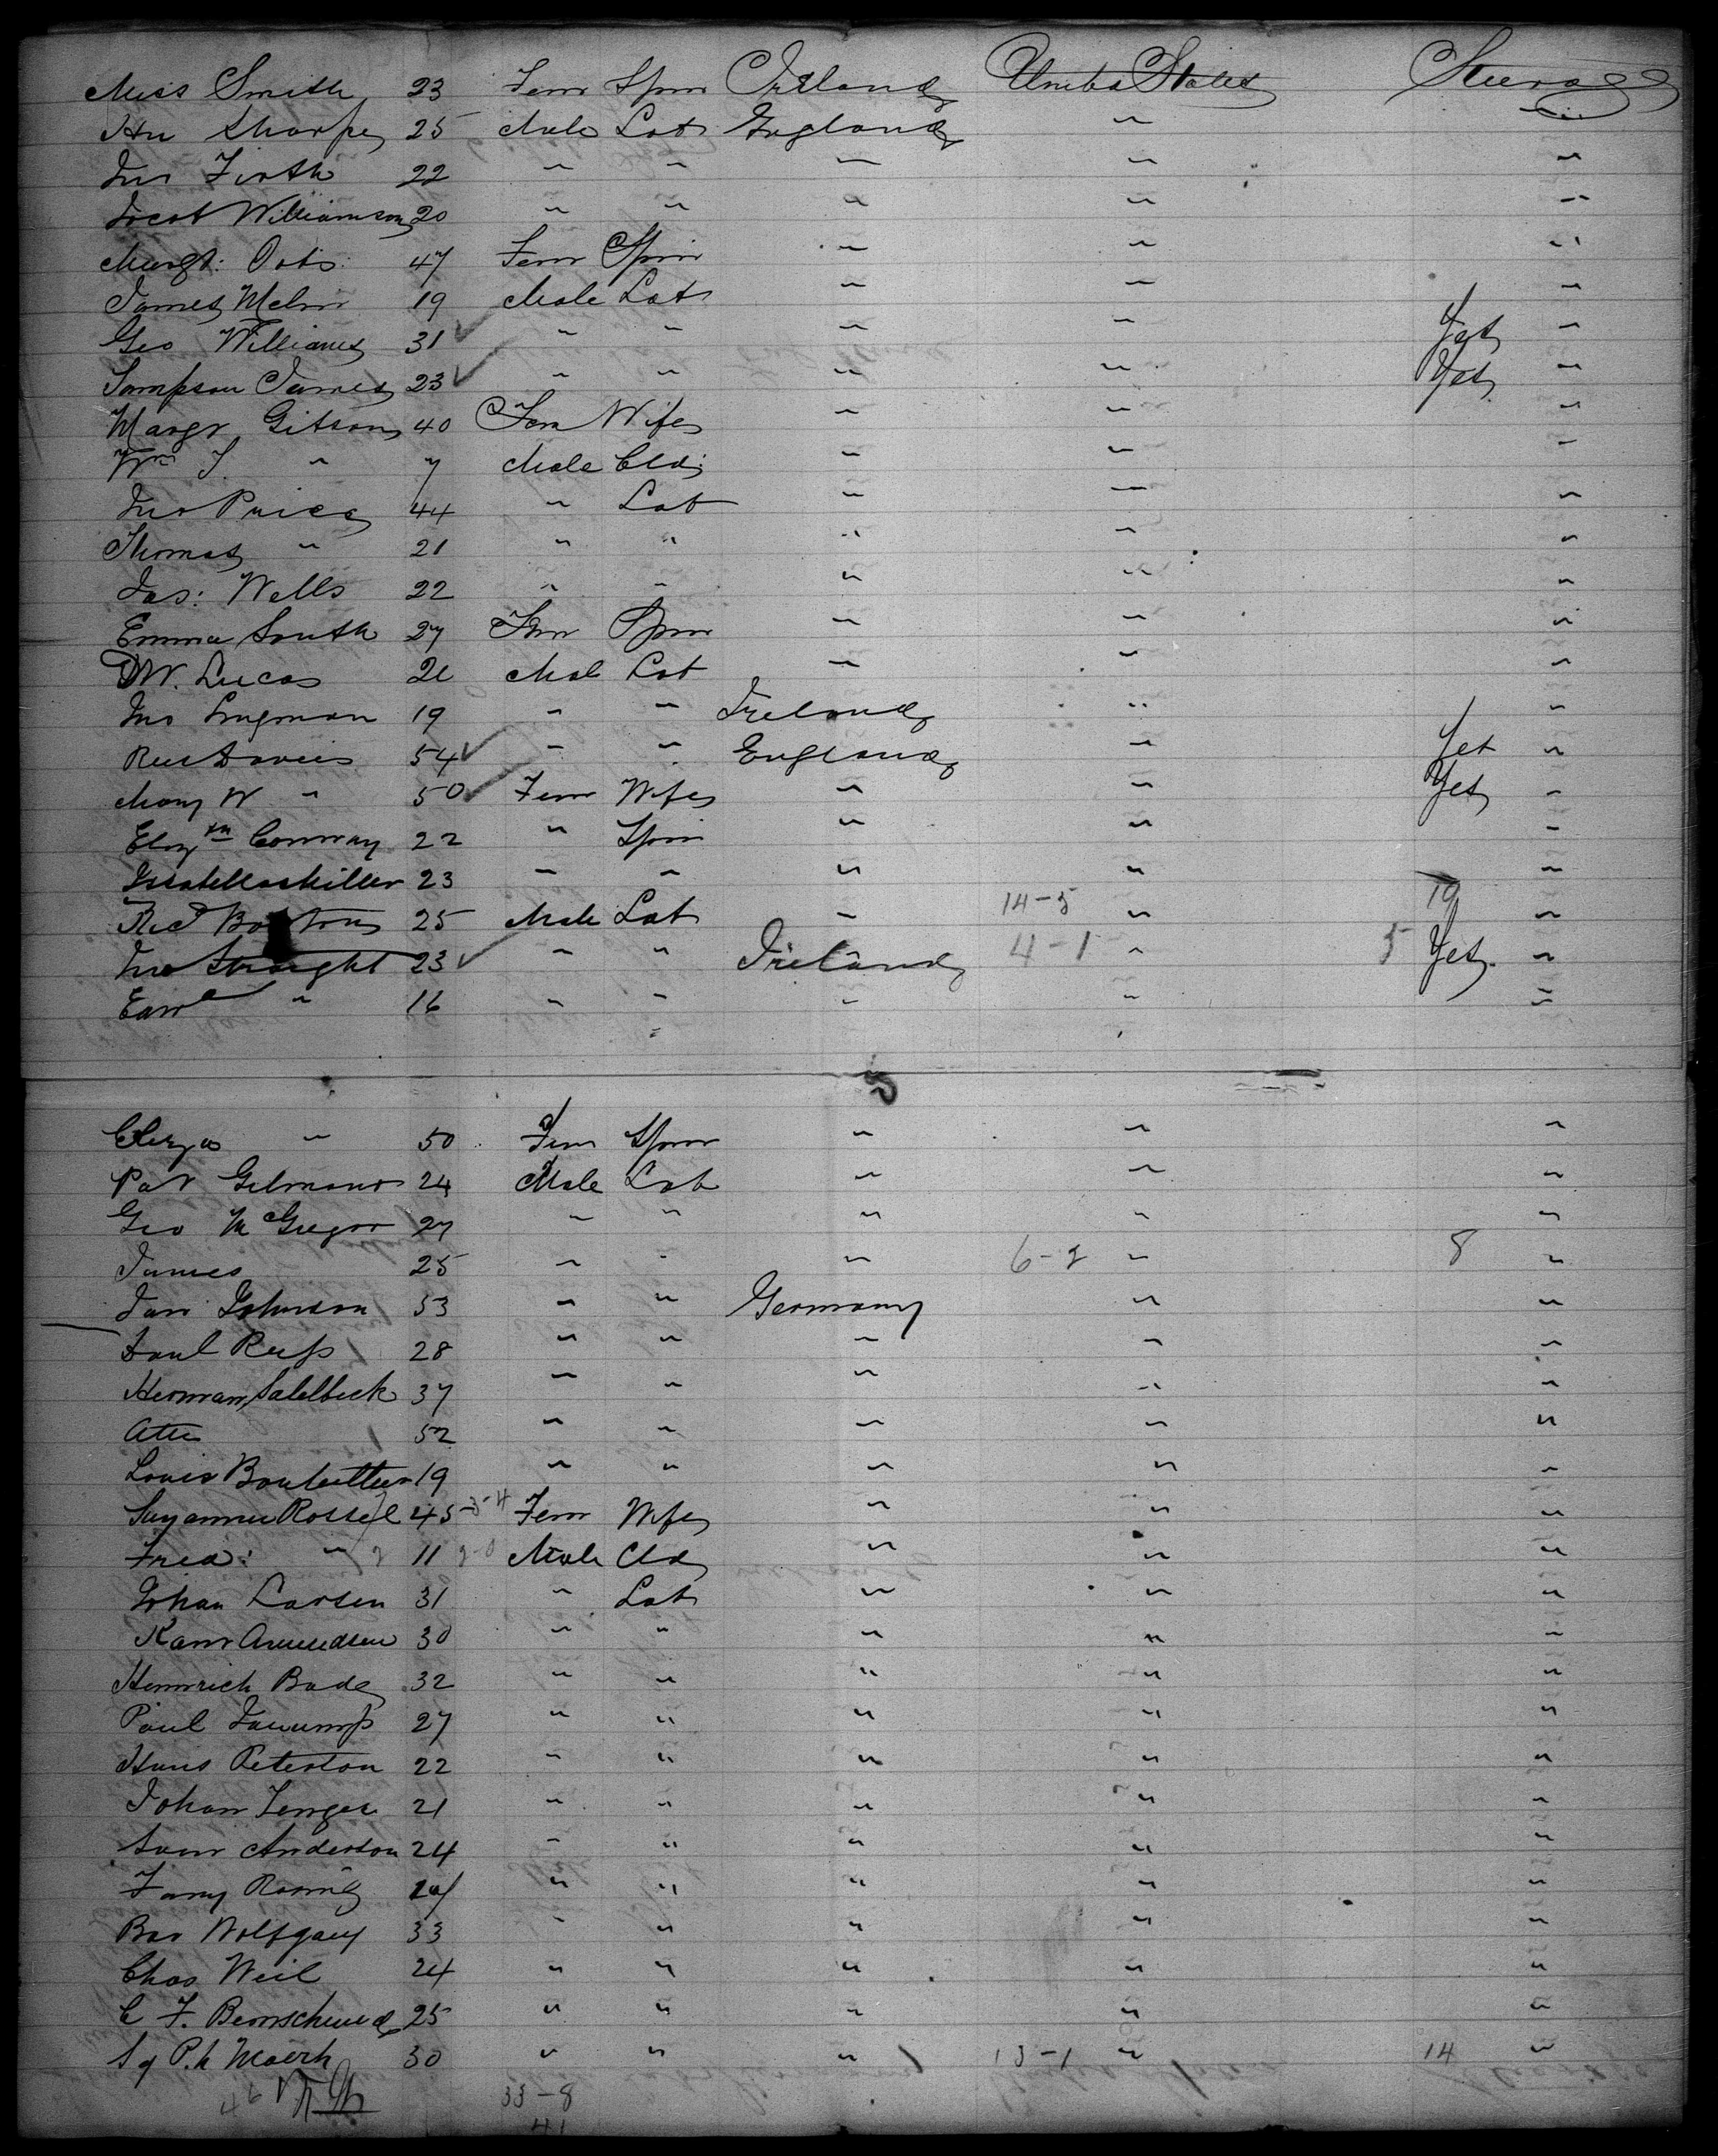 Miss Smith 23 Fem Spin Ireland United States Steerage
Hn Sharpe 25 Male Lab England " "
Jno Firth 22 " " " " "
Jacob Williamson 20 " " " " "
Margt: Oats: 47 Fem Spin " " "
James 19 Male Lab " " "
Geo Williams 31 " " " " Yes "
Sampson James 23 " " " " Yes "
Margr Gitsons 40 Fem Wife " " "
Wm J. " 7 Male Cld: " "
Jno Price 44 " Lab " " "
Thomas " 21 " " " " "
Jas: Wells 22 " " " " "
Emma South 27 Fem Spin " " "
W. Lucas 21 Male Lab " " "
Jno 19 " " Ireland " "
Rees Davies 54 " " England " Yes "
Mary W " 50 Fem Wife " " Yes "
Elizth Conway 22 " Spin " " "
Issabella Miller 23 " " " " "
Ricd Boston 25 Male Lab " 14-5 " 19 "
Jno Straight 23 " " Ireland 4-1 " 5 Yes "
" 16 " " " " "
Eliza " 50 Fem Spin " " "
Pat Gilmour 24 Male Lab " " "
Geo McGregor 27 " " " " "
James 25 " " " 6-2 " 8 "
Jan Johnson 53 " " Germany " "
28 " " " " "
Herman Sahlbeck 37 " " " " "
52 " " " " "
Louis 19 " " " " "
Suzanne Rossel 45 Fem Wife " " "
Fred: " 11 Male Cld " " "
Johan Larsen 31 " Lab " " "
Amundsen 30 " " " " "
Heinrich Bade 32 " " " " "
Paul 27 " " " " "
Hans Peterson 22 " " " " "
Johan 21 " " " " "
Anderson 24 " " " " "
" " " " "
Wolfgang 33 " " " " "
Chas Weil 24 " " " " "
C F. 25 " " " " "
30 " " " 13-1 " 14 "
46 33-8
41